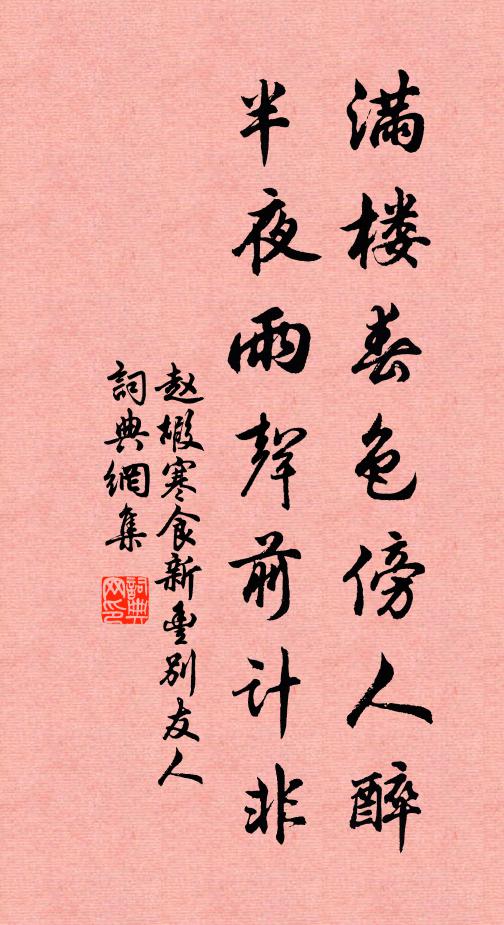 满楼春色傍人醉
半夜雨聲前计非
赵嘏寒食新豐别友人
詞典網集
詞典网印